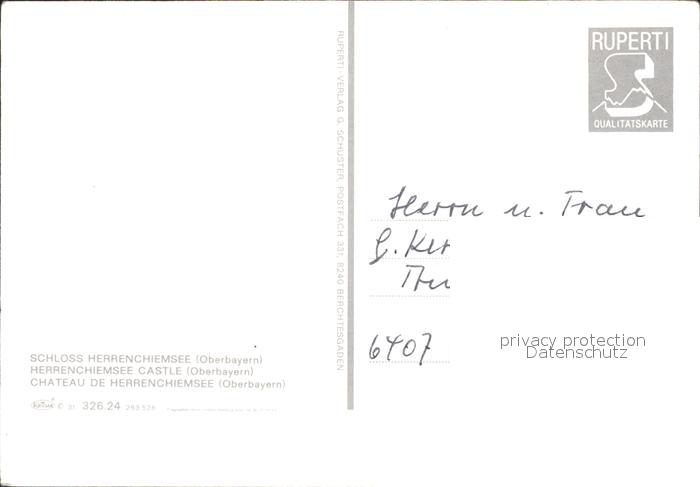 SCHLOSS HERRENCHIEMSEE (Oberbayern)
HERRENCHIEMSEE CASTLE (Oberbayern)
CHATEAU DE HERRENCHIEMSEE (Oberbayern)
© 31 326.24 263 528
RUPERTI-VERLAG G. SCHUSTER, POSTFACH 331, 8240 BERCHTESGADEN
RUPERTI
QUALITÄTSKARTE
Herrn u. Frau
G. Ker
6407
privacy protection
Datenschutz